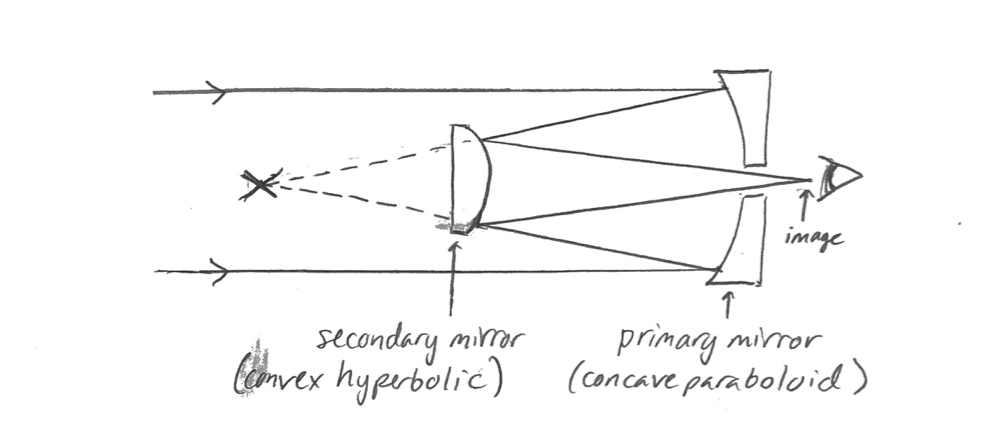 image
secondary mirror
(convex hyperbolic)
primary mirror
(concave paraboloid)